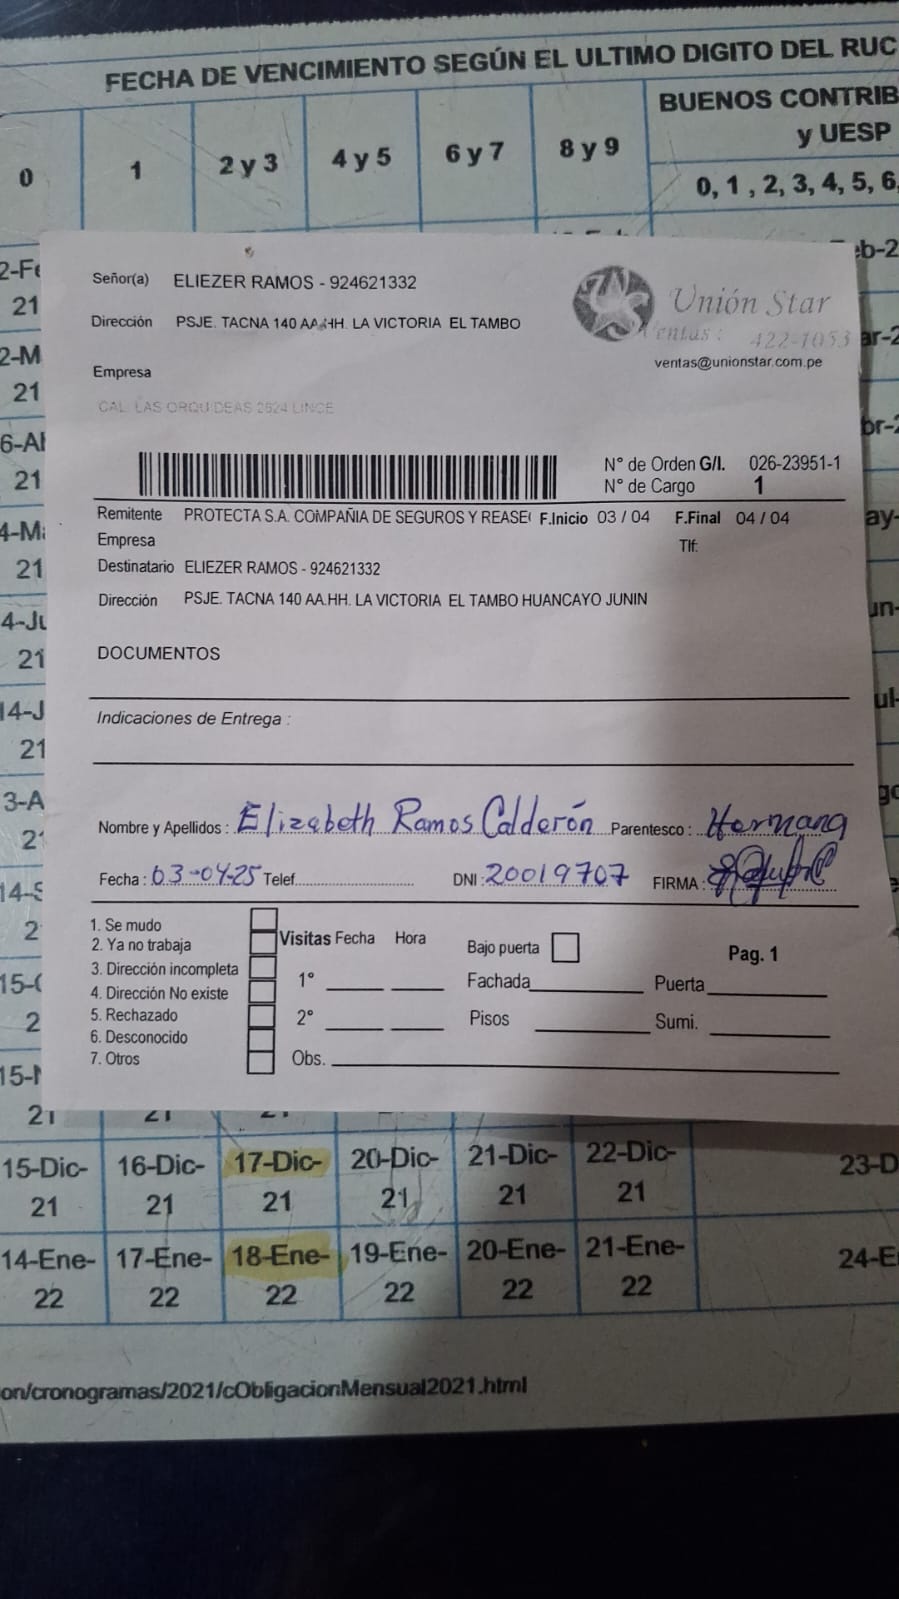 FECHA DE VENCIMIENTO SEGÚN EL ULTIMO DIGITO DEL RUC
BUENOS CONTRIB
y UESP
0 1 2 y 3 4 y 5 6 y 7 8 y 9
0, 1 , 2, 3, 4, 5, 6,
Señor(a) ELIEZER RAMOS - 924621332
Dirección PSJE. TACNA 140 AA.HH. LA VICTORIA EL TAMBO
Empresa
CAL. LAS ORQUIDEAS 2624 LINCE
Unión Star
Ventas : 422-1053
ventas@unionstar.com.pe
N° de Orden G/I. 026-23951-1
N° de Cargo 1
Remitente PROTECTA S.A. COMPAÑIA DE SEGUROS Y REASE F.Inicio 03 / 04 F.Final 04 / 04
Empresa Tlf:
Destinatario ELIEZER RAMOS - 924621332
Dirección PSJE. TACNA 140 AA.HH. LA VICTORIA EL TAMBO HUANCAYO JUNIN
DOCUMENTOS
Indicaciones de Entrega :
Nombre y Apellidos : Elizabeth Ramos Calderón Parentesco : Hermana
Fecha : 03-04-25 Telef. DNI : 20019707 FIRMA :
1. Se mudo
2. Ya no trabaja
3. Dirección incompleta
4. Dirección No existe
5. Rechazado
6. Desconocido
7. Otros
Visitas Fecha Hora Bajo puerta Pag. 1
1° Fachada Puerta
2° Pisos Sumi.
Obs.
15-Dic- 16-Dic- 17-Dic- 20-Dic- 21-Dic- 22-Dic- 23-D
21 21 21 21 21 21
14-Ene- 17-Ene- 18-Ene- 19-Ene- 20-Ene- 21-Ene- 24-E
22 22 22 22 22 22
on/cronogramas/2021/cObligacionMensual2021.html